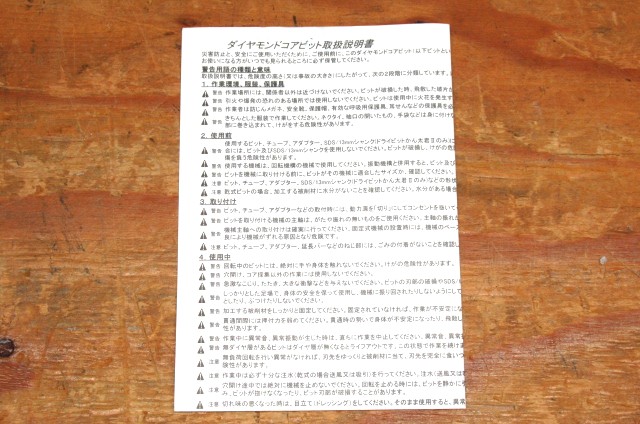 ダイヤモンドコアビット取扱説明書
災害防止と、安全にご使用いただくために、ご使用前に、このダイヤモンドコアビット(以下ビットとい
お使いになる方がいつでも見られるところに必ず保管してください。
警告用語の種類と意味
取扱説明書では、危険度の高さ(又は事故の大きさ)にしたがって、次の2段階に分類しています。
1. 作業環境、服装、保護具
警告 作業場所には、関係者以外は近づけないでください。ビットが破損した時、飛散した破片
警告 引火や爆発の恐れのある場所では使用しないでください。ビットは使用中に火花を発生す
警告 作業者は防じんメガネ、安全靴、保護帽、有効な呼吸用保護具、耳せんなどの保護具を必
警告 きちんとした服装で作業してください。ネクタイ、袖口の開いたもの、手袋などは身に付け
部に巻き込まれて、けがをする危険性があります。
2. 使用前
警告 使用するビット、チューブ、アダプター、SDS/13mmシャンク(ドライビットかん太君Ⅱのみ)に
合には、ビット及びSDS/13mmシャンクを使用しないでください。ビットが破損し、けがの危
傷を負う危険性があります。
警告 使用する機械は、回転機構の機械で使用してください。振動機構と併用すると、ビット及び
警告 ビットを機械に取り付ける前に、ビットがその機械に適合したサイズか、確認してください。
注意 ビット、チューブ、アダプター、SDS/13mmシャンク(ドライビットかん太君Ⅱのみ)などの各
注意 乾式ビットの場合、加工する被削材に水分がないことを確認してください。水分がある場
3. 取り付け
警告 ビット、チューブ、アダプターなどの取付時には、動力源を「切り」にしてコンセントを抜いて
警告 ビットを取り付ける機械の主軸は、がたや振れの無いものをご使用ください。主軸の振れ
警告 機械主軸への取り付けは確実に行ってください。固定式機械の設置時には、機械のベース
良により機械がずれる原因となり危険です。
注意 ビット、チューブ、アダプター、延長バーなどのねじ部には、ごみの付着がないことを確認し
4. 使用中
警告 回転中のビットには、絶対に手や身体を触れないでください。けがの危険性があります。
警告 穴開け、コア採集以外の作業には使用しないでください。
警告 急激なこじり、たたき、大きな衝撃などを与えないでください。ビットの刃部の破損やSDS/
警告 しっかりとした足場で、身体の安全を保って使用し、機械に振り回されたりしないようにして
としたり、ぶつけたりしないでください。
警告 加工する被削材をしっかりと固定してください。固定されていなければ、作業が不安定にな
警告 貫通間際には押付力を弱めてください。貫通時の勢いで身体が不安定になったり、飛散し
性があります。
警告 作業中に異常音、異常振動が生じた時は、直ちに作業を中止してください。異常音、異常
警告 無負荷回転を行い異常がなければ、刃先をゆっくりと被削材に当て、刃先を完全に食いつ
険性があります。
注意 作業中は必ず十分な注水(乾式の場合送風又は吸引)を行ってください。注水(送風又は
注意 穴開け途中では絶対に機械を止めないでください。回転を止める時には、ビットを静かに
み、ビットが抜けなくなったり、ビット刃部が破損することがあります。
注意 切れ味の悪くなった時は、目立て(ドレッシング)をしてください。そのまま使用すると、異常